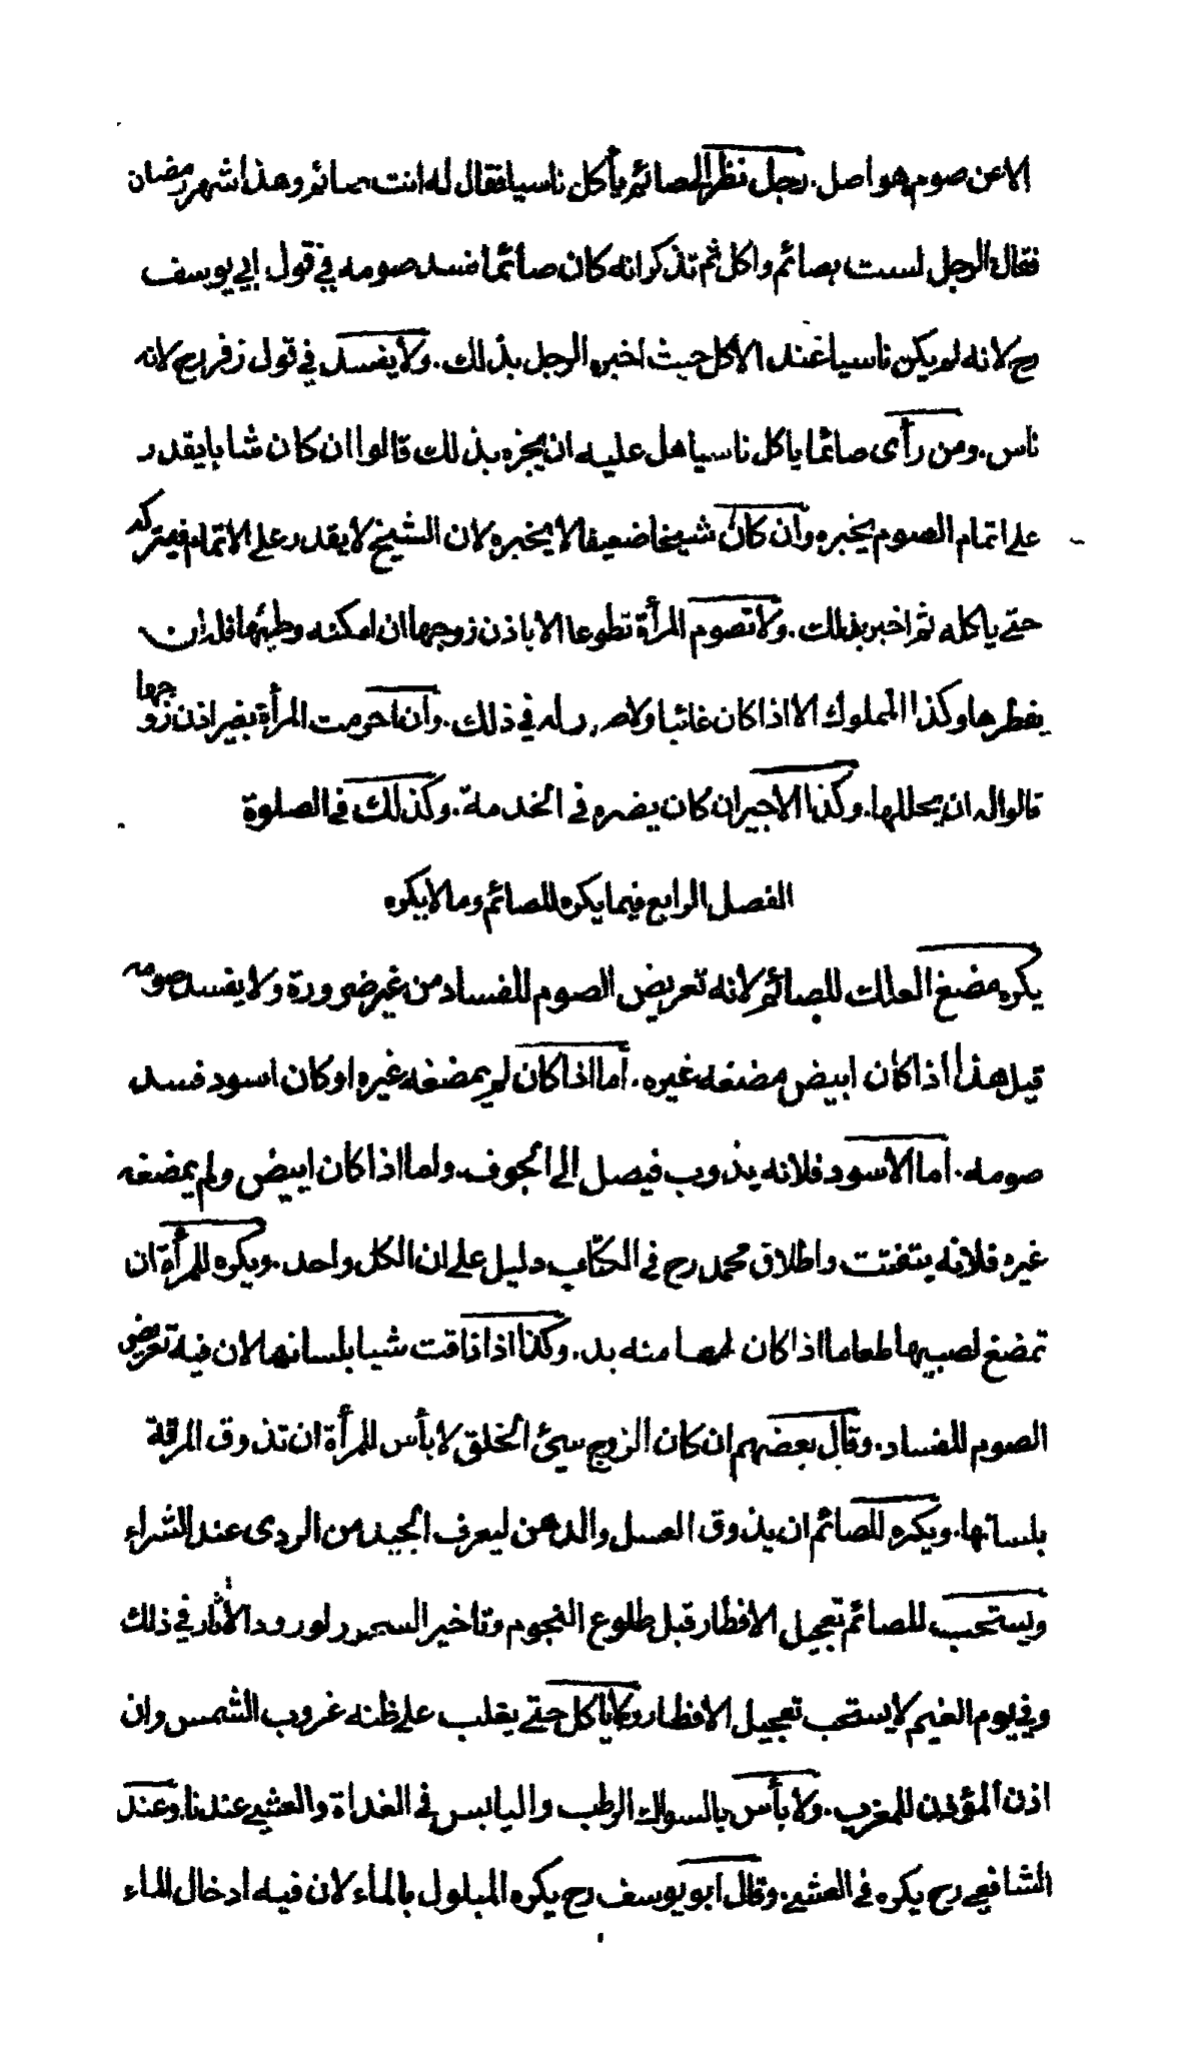 الا عن صوم هو اصل. رجل نظر الى صائم يأكل ناسيا فقال له انت صائم وهذا شهر رمضان
فقال الرجل لست بصائم واكل ثم تذكر انه كان صائما فسد صومه في قول ابي يوسف
رح لانه لم يكن ناسيا عند الأكل حيث اخبره الرجل بذلك. ولا يفسد في قول زفر رح لانه
ناس. ومن رأى صائما ياكل ناسيا هل عليه ان يخبره بذلك قالوا ان كان شابا يقدر
على اتمام الصوم يخبره وان كان شيخا ضعيفا لا يخبره لان الشيخ لا يقدر على الاتمام فيتركه
حتى ياكله ثم اخبر بذلك. ولا تصوم المرأة تطوعا الا باذن زوجها ان امكنه وطيها فله ان
يفطرها وكذا المملوك الا اذا كان غائبا ولا ضرر له في ذلك. وان احرمت المرأة بغير اذن زوجها
قالوا له ان يحللها. وكذا الاجير ان كان يضره في الخدمة. وكذلك في الصلوة
الفصل الرابع فيما يكره للصائم وما لا يكره
يكره مضغ العلك للصائم لانه تعريض الصوم للفساد من غير ضرورة ولا يفسد صومه
قيل هذا اذا كان ابيض مضغه غيره. أما اذا كان لم يمضغه غيره او كان اسود فسد
صومه. أما الأسود فلانه يذوب فيصل الى الجوف. واما اذا كان ابيض ولم يمضغه
غيره فلانه يتفتت واطلاق محمد رح في الكتاب دليل على ان الكل واحد. ويكره للمرأة ان
تمضغ لصبيها طعاما اذا كان لها منه بد. وكذا اذا ذاقت شيا بلسانها لان فيه تعريض
الصوم للفساد. وقال بعضهم ان كان الزوج سيئ الخلق لا بأس للمرأة ان تذوق المرقة
بلسانها. ويكره للصائم ان يذوق العسل والدهن ليعرف الجيد من الردى عند الشراء
ويستحب للصائم تعجيل الافطار قبل طلوع النجوم وتاخير السحور لورود الأثار في ذلك
وفي يوم الغيم لا يستحب تعجيل الافطار ولا ياكل حتى يغلب على ظنه غروب الشمس وان
اذن المؤذن للمغرب. ولا بأس بالسواك الرطب واليابس في الغداة والعشي عندنا وعند
الشافعي رح يكره في العشي. وقال ابو يوسف رح يكره المبلول بالماء لان فيه ادخال الماء